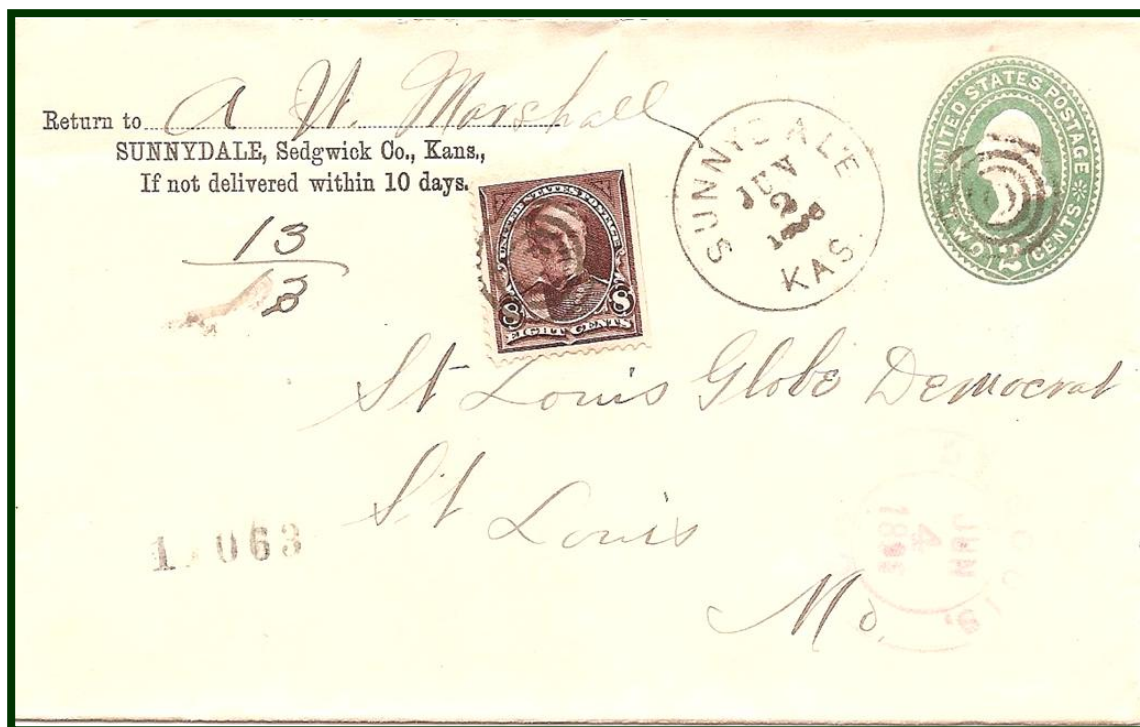 Return to A W. Marshall
SUNNYDALE, Sedgwick Co., Kans.,
If not delivered within 10 days.
13
UNITED STATES POSTAGE
8 8
EIGHT CENTS
SUNNYDALE
JUN
2
KAS.
UNITED STATES POSTAGE
TWO 2 CENTS
St Louis Globe Democrat
St Louis
Mo.
1 063
JUN
4